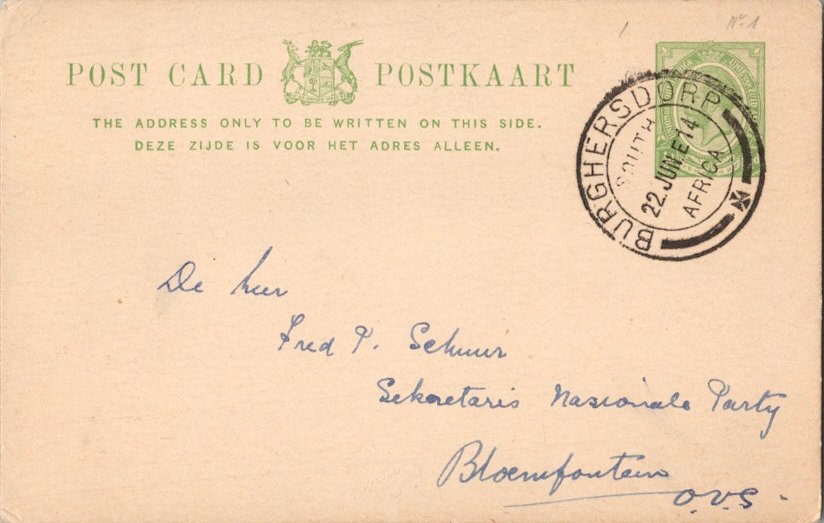 No 1
POST CARD POSTKAART
THE ADDRESS ONLY TO BE WRITTEN ON THIS SIDE.
DEZE ZIJDE IS VOOR HET ADRES ALLEEN.
BURGHERSDORP
SOUTH
22.JUN.E14
AFRICA
De heer
Fred P.
Sekretaris Nasionale Party
Bloemfontein
O.V.S.